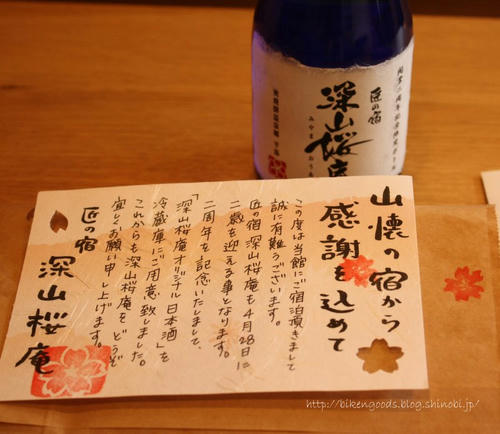 匠の宿
深山桜庵
みやまおうあん
山懐の宿から
感謝を込めて
この度は当館にご宿泊頂きまして
誠に有難うございます。
匠の宿 深山桜庵も4月28日に
二歳を迎える事となります。
二周年を記念いたしまして、
「深山桜庵オリジナル日本酒」を
冷蔵庫にご用意致しました。
これからも深山桜庵を どうぞ
宜しくお願い申し上げます。
匠の宿 深山桜庵
http://bikengoods.blog.shinobi.jp/